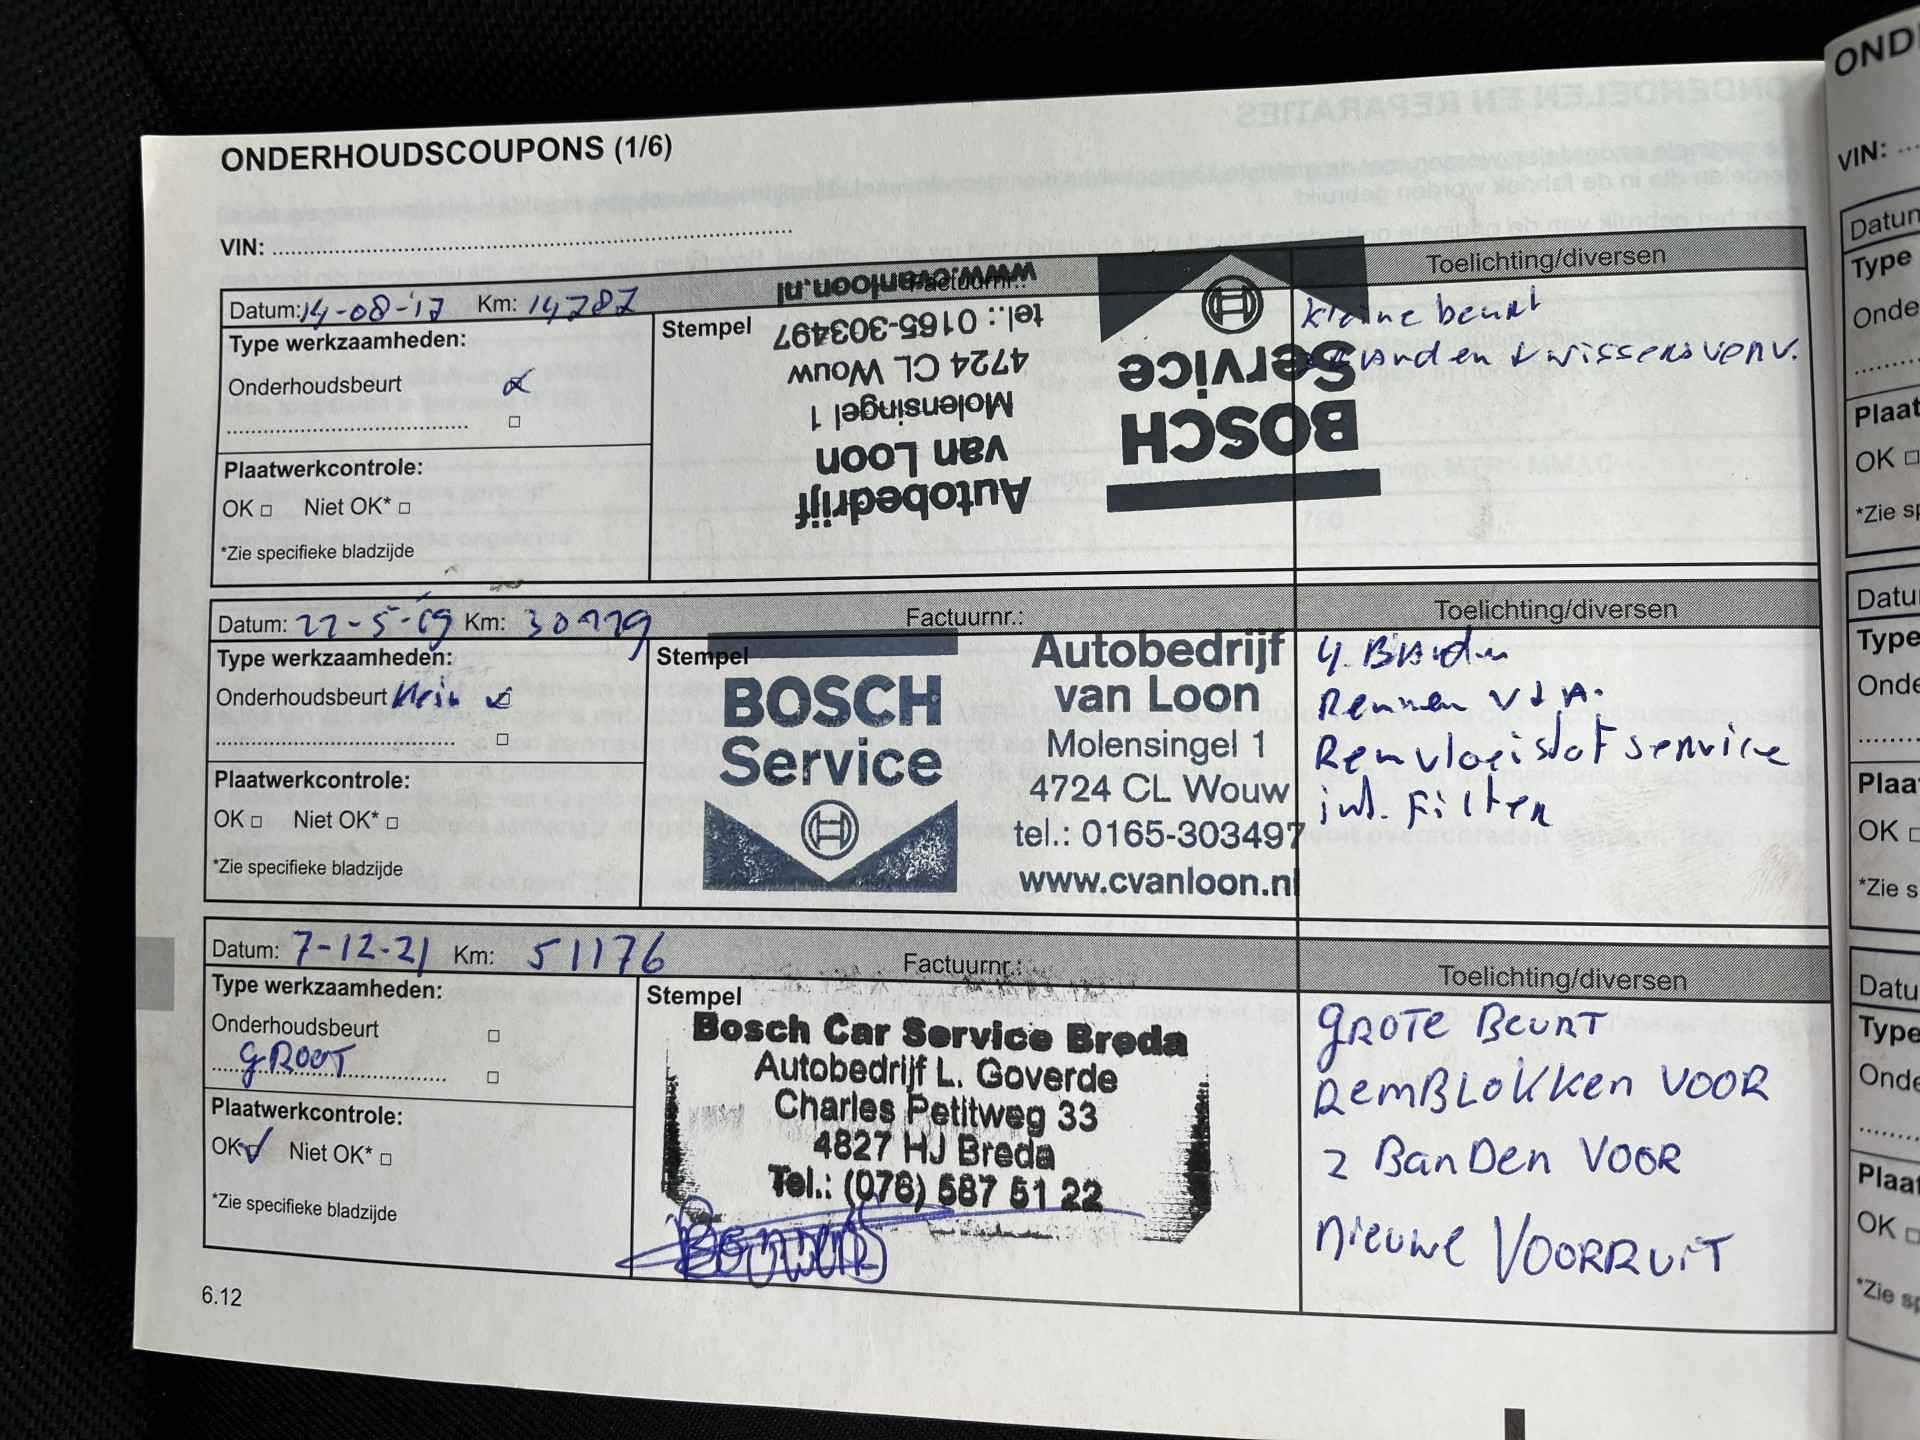 ONDERHOUDSCOUPONS (1/6)
VIN:
Datum: 14-08-'17 Km: 14787 Factuurnr.: Toelichting/diversen
Type werkzaamheden:
Onderhoudsbeurt
Plaatwerkcontrole:
OK □ Niet OK* □
*Zie specifieke bladzijde
Stempel
BOSCH
Service
Autobedrijf
van Loon
Molensingel 1
4724 CL Wouw
tel.: 0165-303497
www.cvanloon.nl
kleine beurt
banden + wissers verv.
Datum: 22-5-'19 Km: 30119 Factuurnr.: Toelichting/diversen
Type werkzaamheden:
Onderhoudsbeurt klein
Plaatwerkcontrole:
OK □ Niet OK* □
*Zie specifieke bladzijde
Stempel
BOSCH
Service
Autobedrijf
van Loon
Molensingel 1
4724 CL Wouw
tel.: 0165-303497
www.cvanloon.nl
4 Banden
Remmen V+A.
Remvloeistof service
int. Filter
Datum: 7-12-21 Km: 51176 Factuurnr.: Toelichting/diversen
Type werkzaamheden:
Onderhoudsbeurt □
GROOT □
Plaatwerkcontrole:
OK Niet OK* □
*Zie specifieke bladzijde
Stempel
Bosch Car Service Breda
Autobedrijf L. Goverde
Charles Petitweg 33
4827 HJ Breda
Tel.: (076) 587 51 22
GROTE BEURT
REMBLOKKEN VOOR
2 BANDEN VOOR
NIEUWE VOORRUIT
6.12
VIN:
Type
Plaat
OK □
Type
OK □
Type
OK □